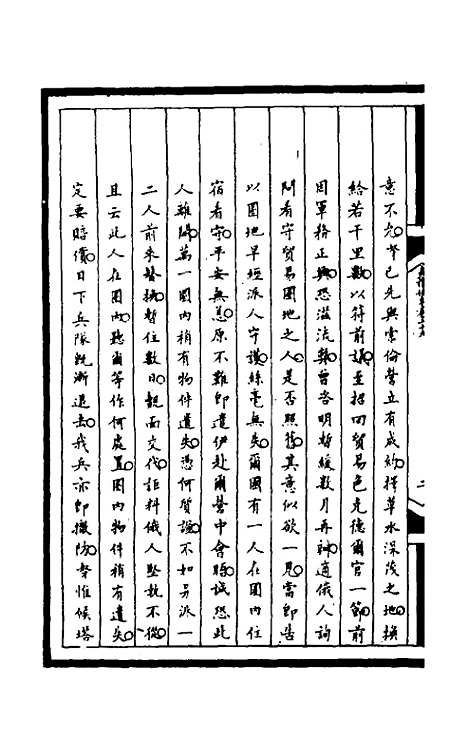 意不允奪已先與常倫營立有成約擇草水深茂之地換
給若干里數以符前議至招回貿易色克德爾官一節前
因軍務正興恐溢流弊曾咨明暫緩數月再辦適俄人詢
問看守貿易圈地之人是否照舊其意似欲一見當即告
以圈地早經派人守護絲毫無失爾國有一人在圈內住
宿看守平安無恙原不難即遣伊赴爾營中會晤誠恐此
人離歸萬一圈內稍有物件遺失憑何質證不如另派一
二人前來替換暫住數日親面交代詎料俄人堅執不從
且云此人在圈內聽爾等作何處置圈內物件稍有遺失
定要賠償日下兵隊既漸退去我兵亦即撤防奪惟候塔